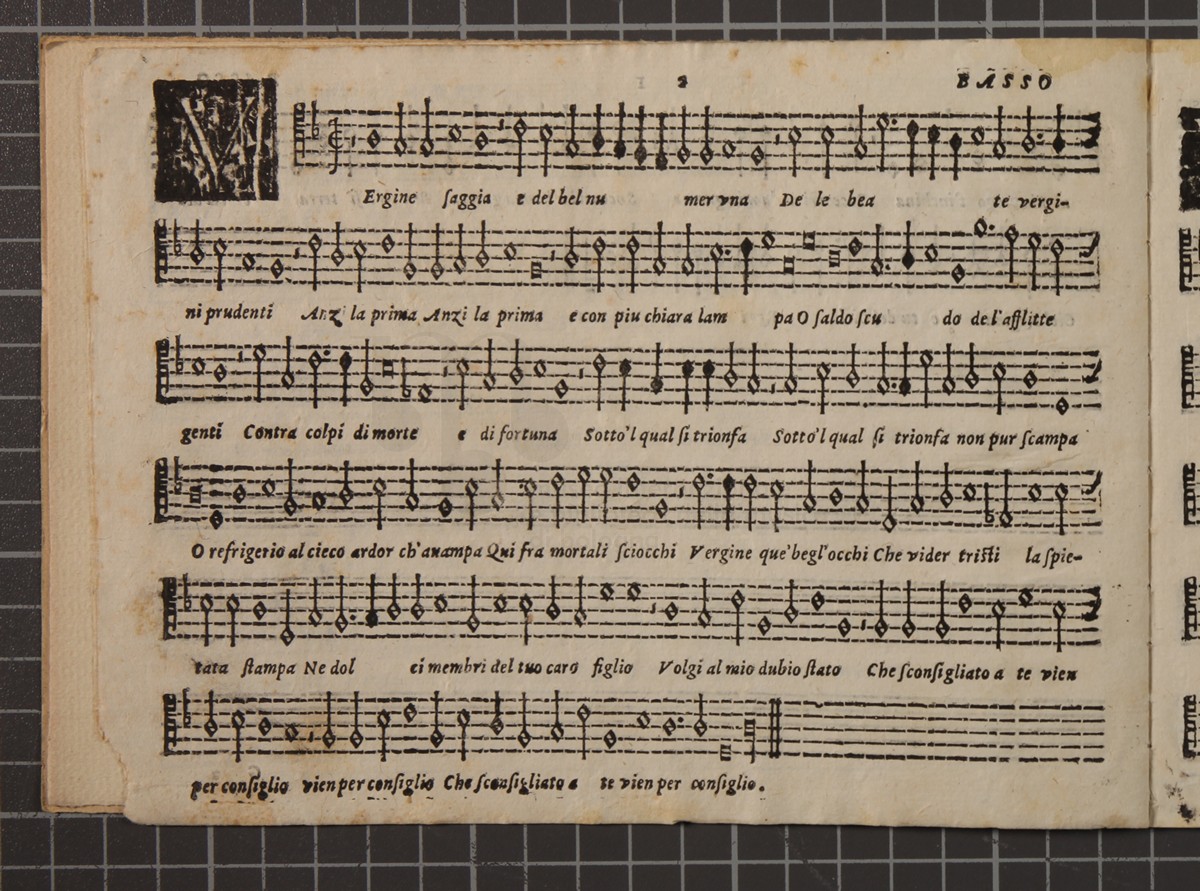 2 BASSO
V
Ergine saggia e del bel nu mer vna De le bea te vergi-
ni prudenti Anzi la prima Anzi la prima e con piu chiara lam pa O saldo scu do de l'afflitte
genti Contra colpi di morte e di fortuna Sotto'l qual si trionfa Sotto'l qual si trionfa non pur scampa
O refrigerio al cieco ardor ch'auampa Qui fra mortali sciocchi Vergine que' begl'occhi Che vider tristi la spie-
tata stampa Ne dol ci membri del tuo caro figlio Volgi al mio dubio stato Che sconsigliato a te vien
per consiglio vien per consiglio Che sconsigliato a te vien per consiglio.